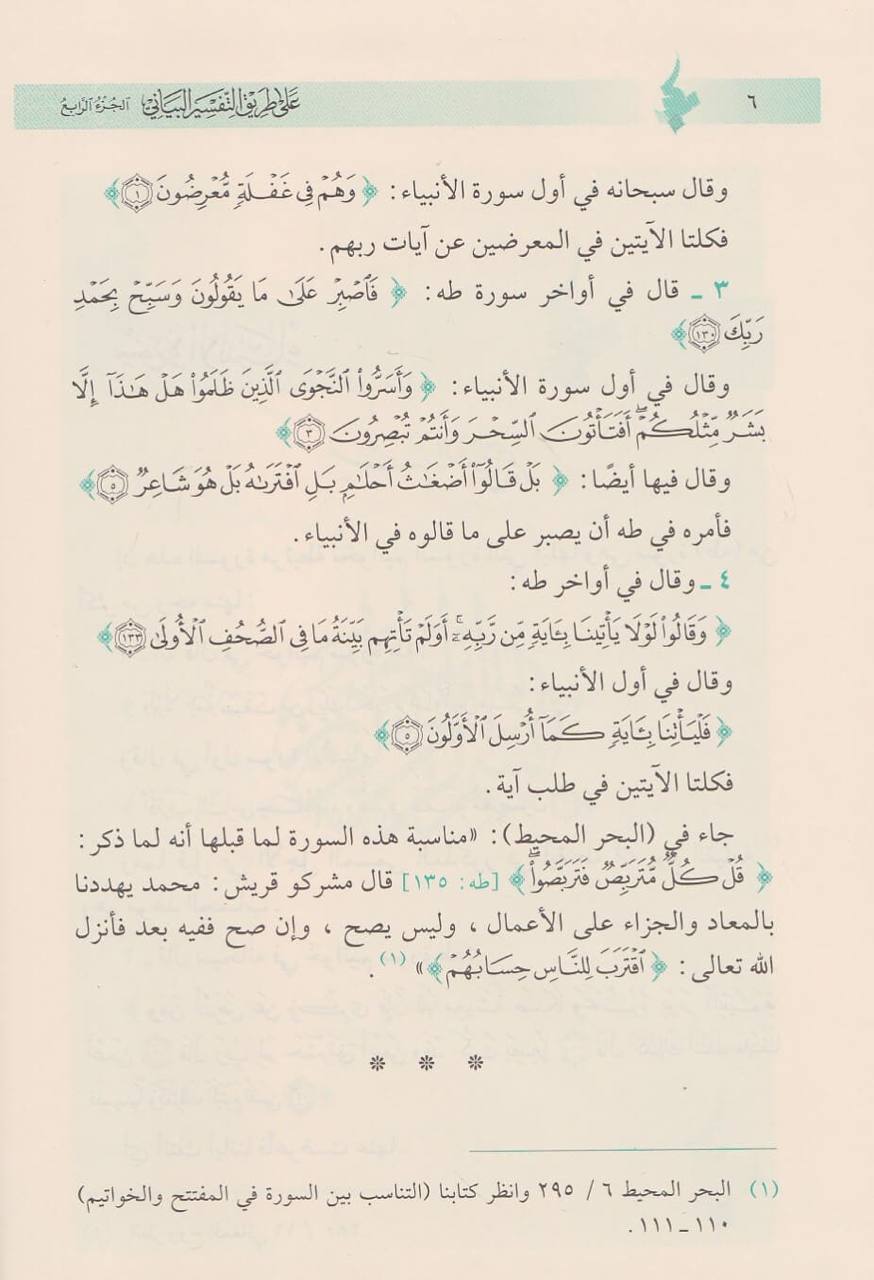 ٦
على طريق التفسير البياني الجزء الرابع
وقال سبحانه في أول سورة الأنبياء: ﴿وَهُمْ فِى غَفْلَةٍ مُّعْرِضُونَ ١﴾
فكلتا الآيتين في المعرضين عن آيات ربهم.
٣ ـ قال في أواخر سورة طه: ﴿فَٱصْبِرْ عَلَىٰ مَا يَقُولُونَ وَسَبِّحْ بِحَمْدِ
رَبِّكَ ١٣٠﴾
وقال في أول سورة الأنبياء: ﴿وَأَسَرُّوا۟ ٱلنَّجْوَى ٱلَّذِينَ ظَلَمُوا۟ هَلْ هَـٰذَآ إِلَّا
بَشَرٌ مِّثْلُكُمْ ۖ أَفَتَأْتُونَ ٱلسِّحْرَ وَأَنتُمْ تُبْصِرُونَ ٣﴾
وقال فيها أيضًا: ﴿بَلْ قَالُوٓا۟ أَضْغَـٰثُ أَحْلَـٰمٍۭ بَلِ ٱفْتَرَىٰهُ بَلْ هُوَ شَاعِرٌ ٥﴾
فأمره في طه أن يصبر على ما قالوه في الأنبياء.
٤ ـ وقال في أواخر طه:
﴿وَقَالُوا۟ لَوْلَا يَأْتِينَا بِـَٔايَةٍ مِّن رَّبِّهِۦٓ ۚ أَوَلَمْ تَأْتِهِم بَيِّنَةُ مَا فِى ٱلصُّحُفِ ٱلْأُولَىٰ ١٣٣﴾
وقال في أول الأنبياء:
﴿فَلْيَأْتِنَا بِـَٔايَةٍ كَمَآ أُرْسِلَ ٱلْأَوَّلُونَ ٥﴾
فكلتا الآيتين في طلب آية.
جاء في (البحر المحيط): «مناسبة هذه السورة لما قبلها أنه لما ذكر:
﴿قُلْ كُلٌّ مُّتَرَبِّصٌ فَتَرَبَّصُوا۟ ۖ﴾ [طه: ١٣٥] قال مشركو قريش: محمد يهددنا
بالمعاد والجزاء على الأعمال، وليس يصح، وإن صح ففيه بعد فأنزل
الله تعالى: ﴿ٱقْتَرَبَ لِلنَّاسِ حِسَابُهُمْ﴾» (١).
* * *
(١) البحر المحيط ٦ / ٢٩٥ وانظر كتابنا (التناسب بين السورة في المفتتح والخواتيم)
١١٠ ـ ١١١.